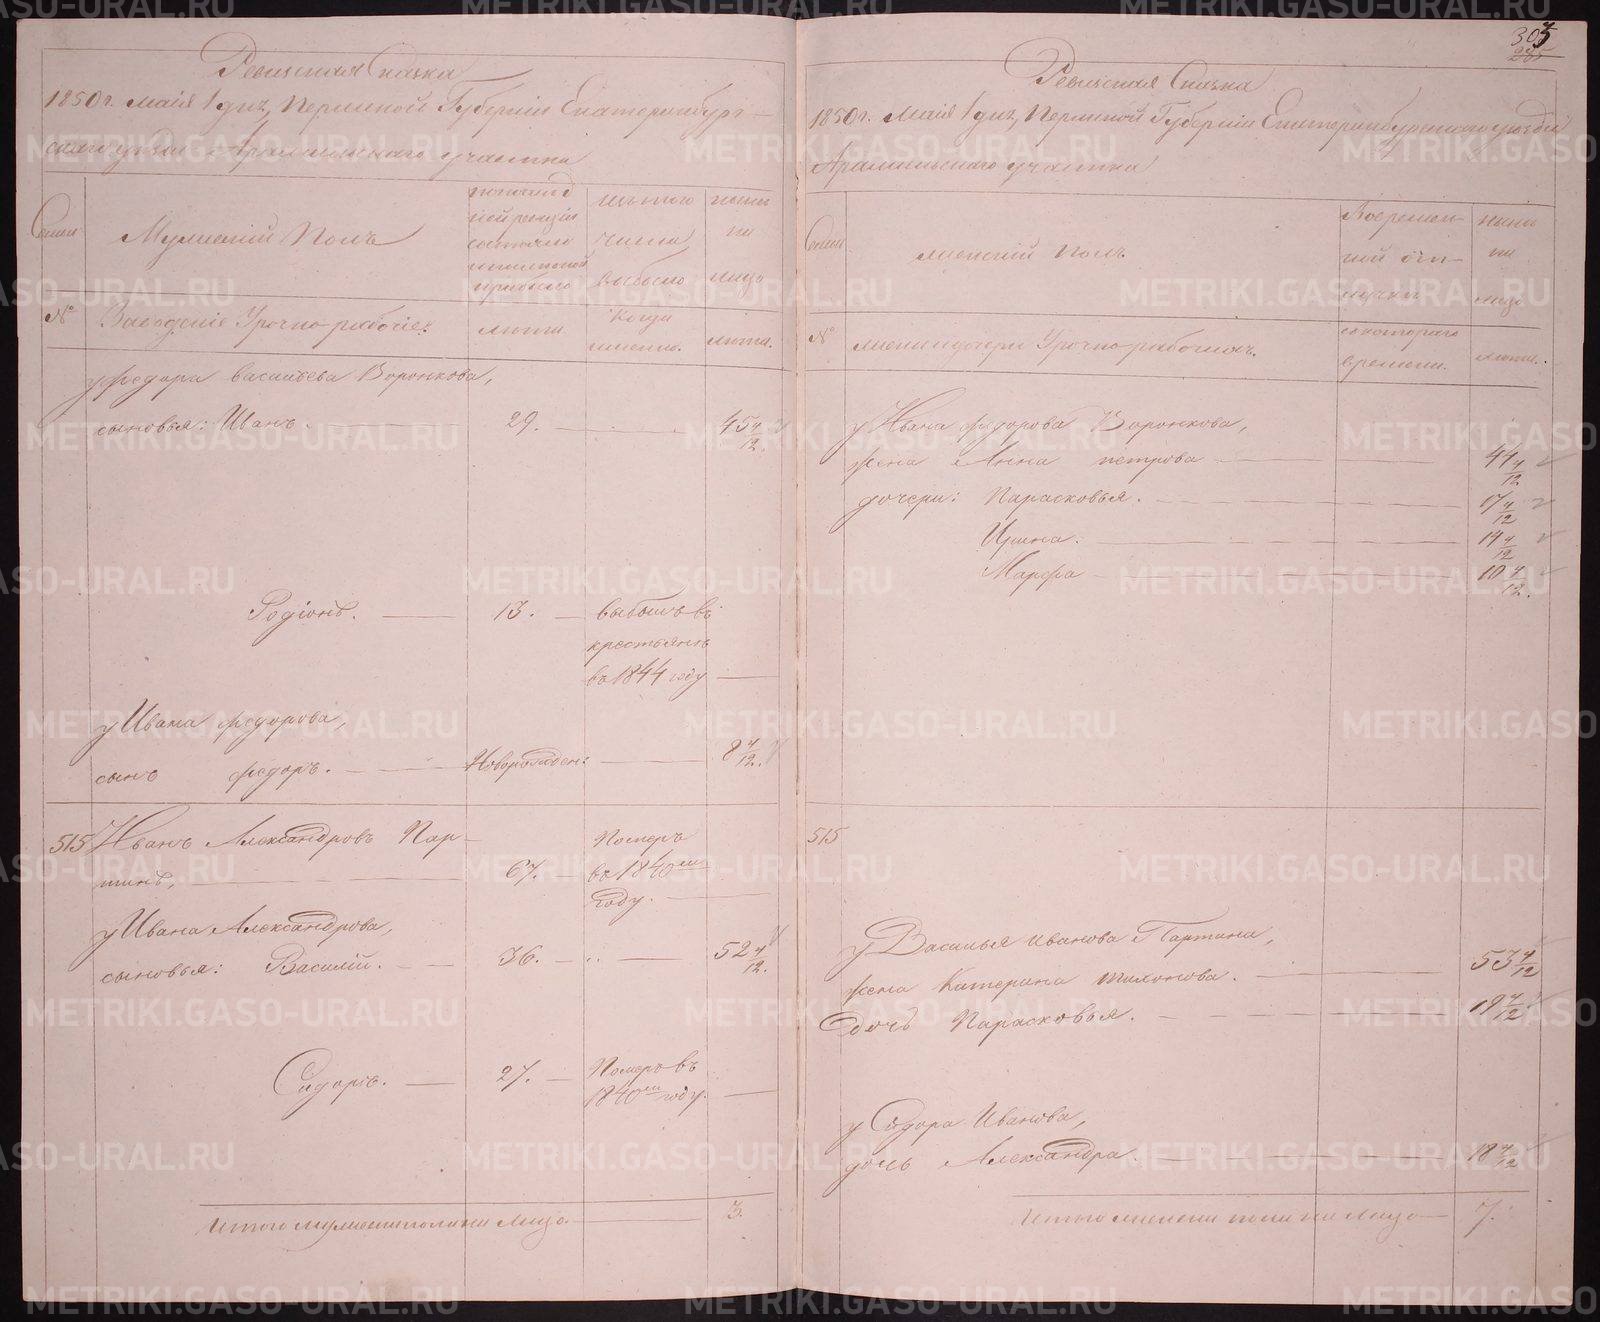 Ревизская Сказка
1850 г. маія 1 дня, Пермской Губерніи Екатеринбург-
скаго уезда Арамильскаго участка
Семьи
Мужеский Полъ
по последней ревизіи состояло и после оной прибыло
изъ того числа выбыло
ныне на лицо
№
Заводскіе Урочно-рабочіе:
лета.
Когда именно.
лета.
у Федора Васильева Воронкова,
сыновья: Иванъ. 29. 45 4/12.
Родіонъ. 13. выбылъ въ
крестьяне
въ 1844 году
у Ивана Федорова,
сынъ Федоръ. Новорожден: 8 4/12.
515 Иванъ Александровъ Пар- Померъ
тинъ, 67. въ 1840 м
году.
у Ивана Александрова,
сыновья: Василій. 36. 52 4/12.
Сидоръ. 27. Померъ въ
1840 м году.
Итого мужеска пола на лицо 3.
305
Ревизская Сказка
1850 г. Маія 1 дня, Пермской Губерніи Екатеринбургскаго уезда
Арамильскаго участка
Семьи
женский полъ.
Во временной отлучке
ныне на лицо
№
жены и дочери Урочно-рабочихъ.
съ котораго времени.
лета.
у Ивана Федорова Воронкова,
жена Анна Петрова 44 4/12
дочери: Парасковья. 17 4/12
Ирина. 19 4/12
Марфа 10 4/12.
515
у Василья Иванова Партина,
жена Катерина Тихонова. 53 4/12
дочь Парасковья. 19 4/12
у Сидора Иванова,
дочь Александра. 18 4/12
Итого женска пола на лицо 7.
METRIKI.GASO-URAL.RU